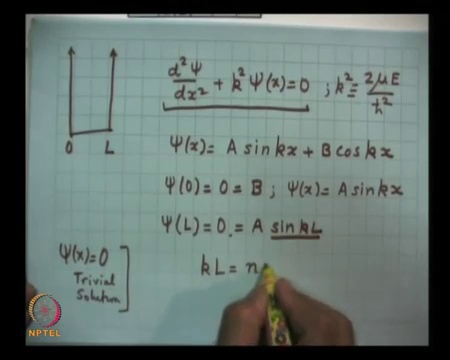 d²Ψ/dx² + k² Ψ(x) = 0 ; k² = 2μE/ħ²
0 L
Ψ(x) = A sin kx + B cos kx
Ψ(0) = 0 = B ; Ψ(x) = A sin kx
Ψ(L) = 0 . = A sin kL
Ψ(x) = 0
Trivial
Solution
kL = n
NPTEL